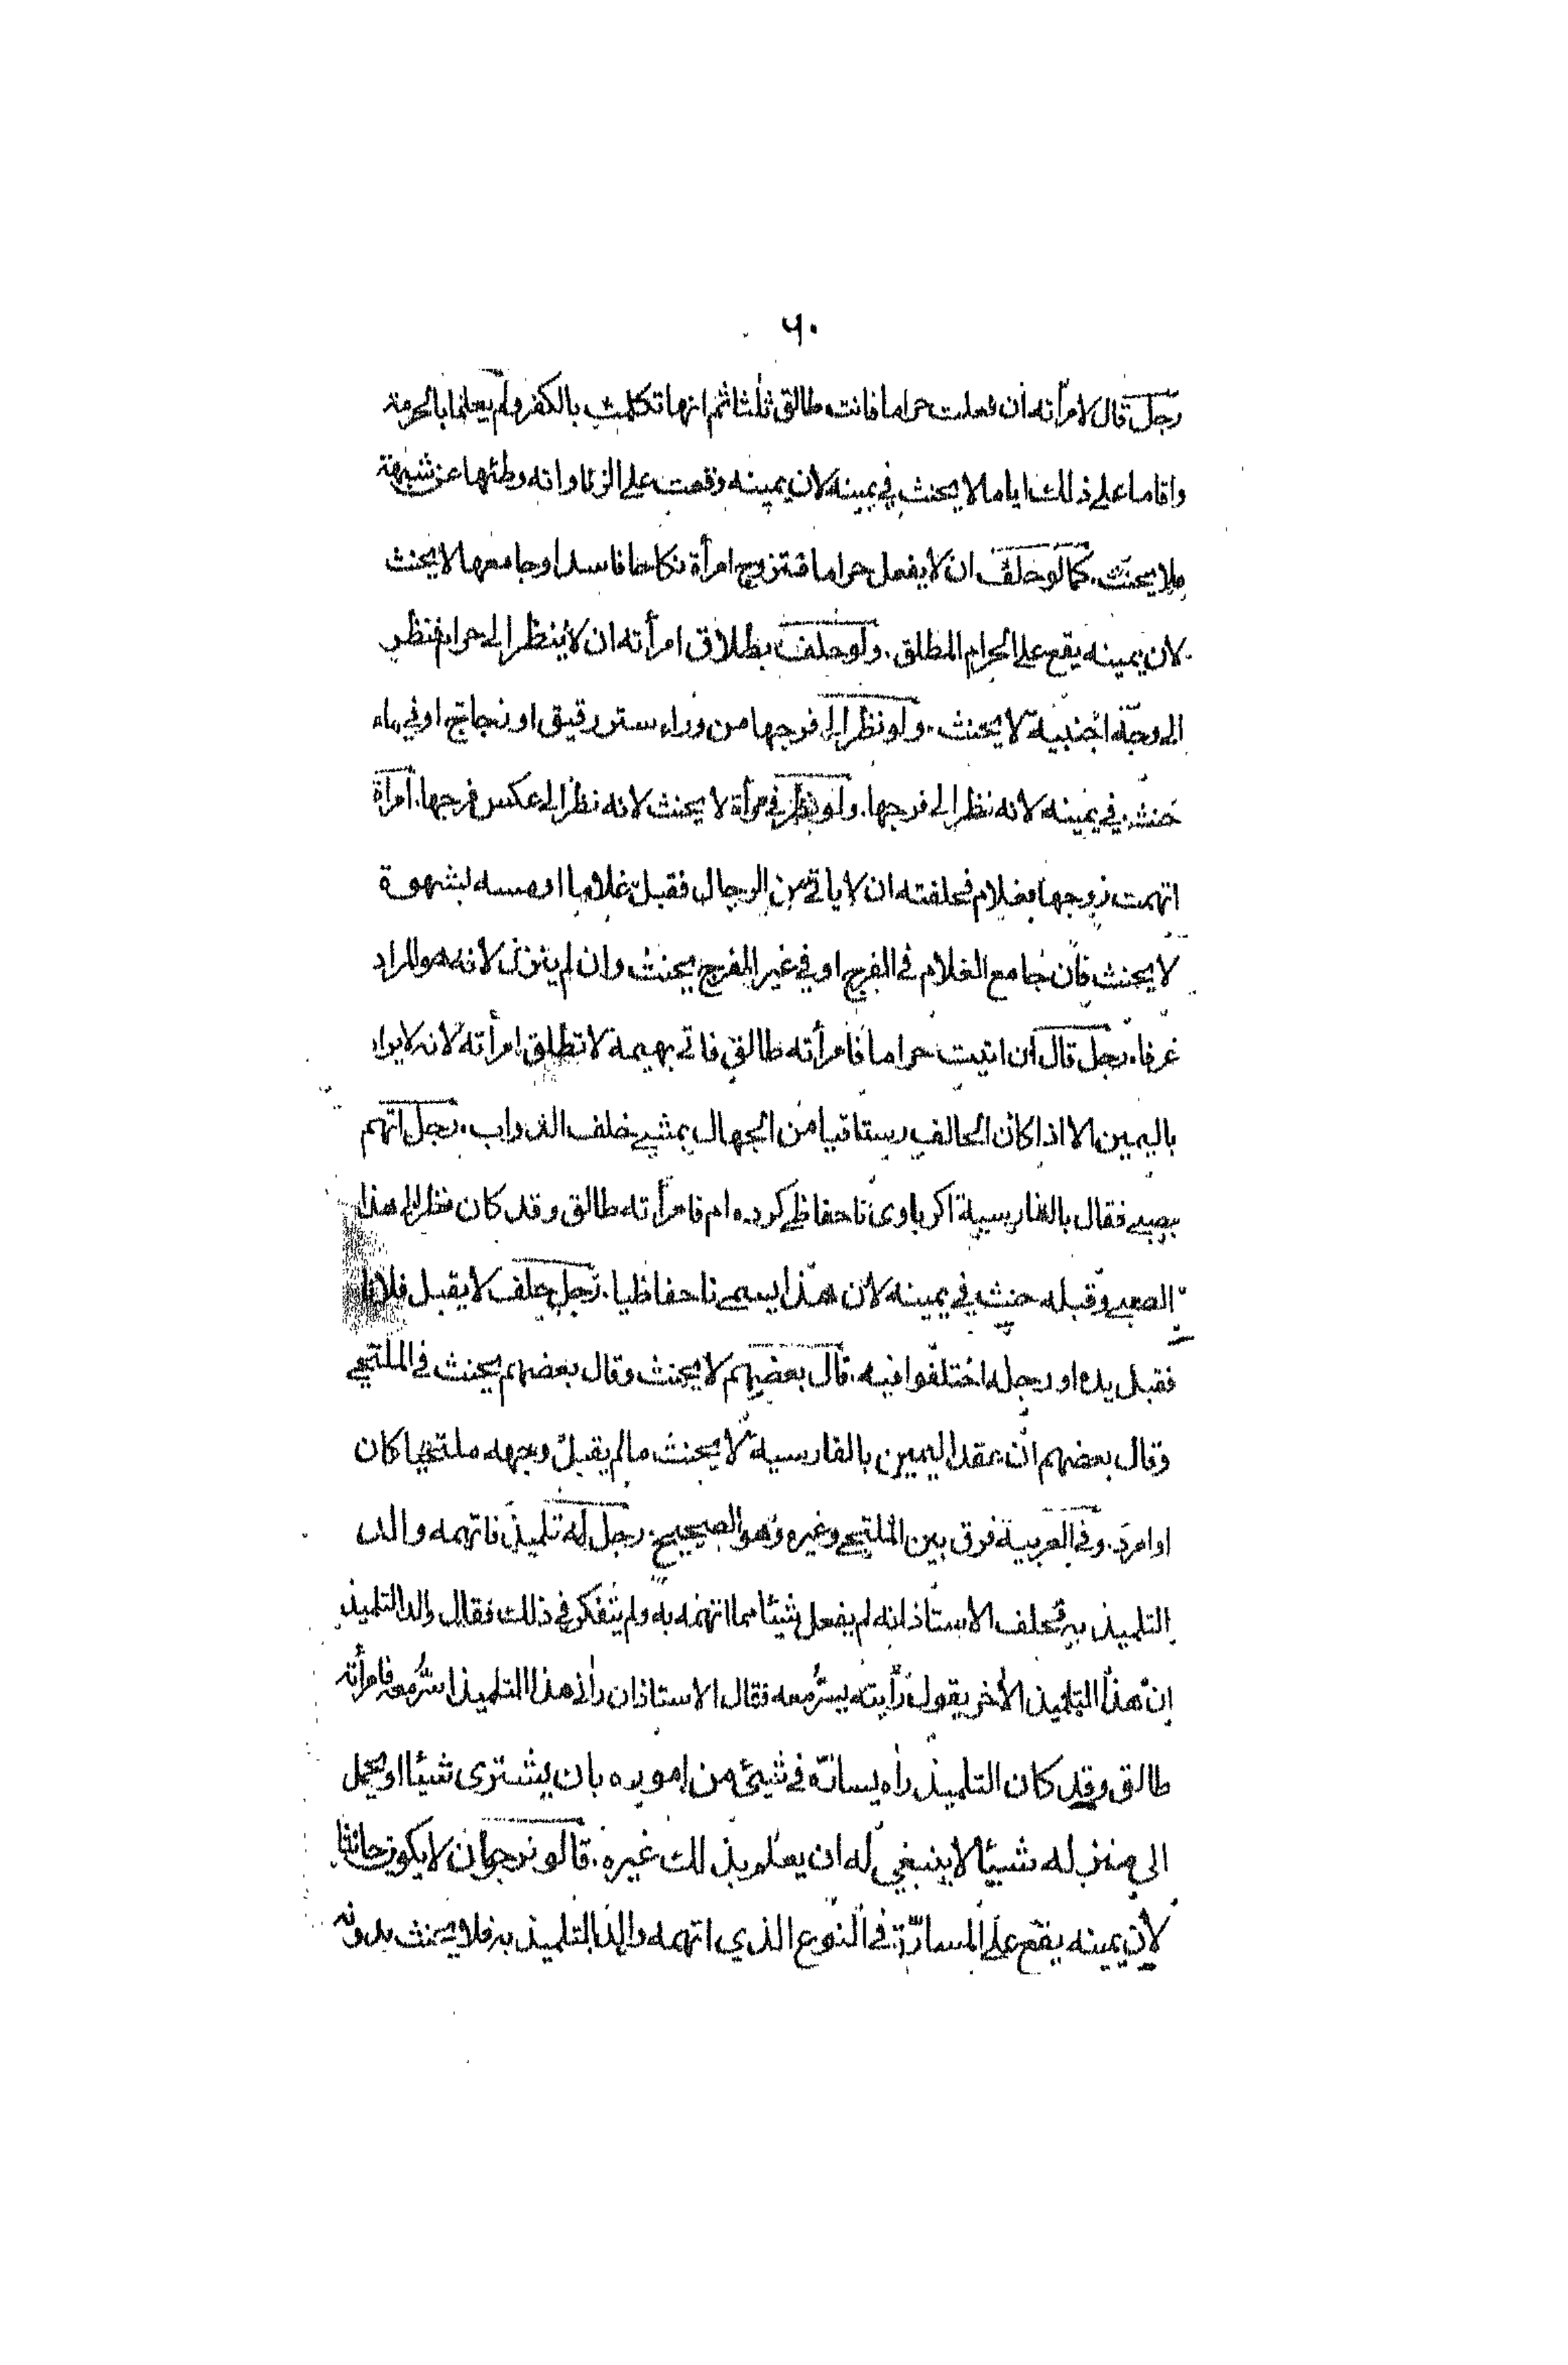 ٦٠
رجل قال لامرأته ان فعلت حراما فانت طالق ثلثا ثم انها تكلمت بالكفر ولم يعلما بالحرمة
واقاما على ذلك اياما لا يحنث في يمينه لان يمينه وقعت على الزنا وانه وطئها عن شبهة
فلا يحنث. كما لو حلف ان لا يفعل حراما فتزوج امرأة نكاحا فاسدا وجامعها لا يحنث
لان يمينه يقع على الحرام المطلق. ولو حلف بطلاق امرأته ان لا ينظر الى حرام فنظر
الى وجه اجنبية لا يحنث. ولو نظر الى فرجها من وراء ستر رقيق او زجاج او في ماء
حنث في يمينه لانه نظر الى فرجها. ولو نظر في مرأة لا يحنث لانه نظر الى عكس فرجها. امرأة
اتهمت زوجها بغلام فحلفته ان لا ياتي من الرجال فقبل غلاما او مسه بشهوة
لا يحنث فان جامع الغلام في الفرج او في غير الفرج يحنث وان لم ينزل لانه هو المراد
عرفا. رجل قال ان اتيت حراما فامرأته طالق فاتى بهيمة لا تطلق امرأته لانه لا يراد
باليمين الا اذا كان الحالف رستاقيا من الجهال يمشي خلف الدواب. رجل اتهم
بصبي فقال بالفارسية اكر باوى نا حفاظي كرده ام فامرأته طالق وقد كان نظر الى هذا
الصبي وقبله حنث في يمينه لان هذا يسمى نا حفاظيا. رجل حلف لا يقبل فلانا
فقبل يده او رجله اختلفوا فيه. قال بعضهم لا يحنث وقال بعضهم يحنث في الملتحي
وقال بعضهم ان عقد اليمين بالفارسية لا يحنث ما لم يقبل وجهه ملتحيا كان
او امرد. وفي العربية فرق بين الملتحي وغيره وهو الصحيح. رجل له تلميذ فاتهمه والد
التلميذ به فحلف الاستاذ انه لم يفعل شيئا مما اتهمه به ولم يتفكر في ذلك فقال والد التلميذ
ان هذا التلميذ الأخر يقول رأيته يسر معه فقال الاستاذ ان رأني هذا التلميذ اسر معه فامرأته
طالق وقد كان التلميذ رأه يساره في شيئ من اموره بان يشترى شيئا او يحمل
الى منزله شيئا لا ينبغي له ان يعلم بذلك غيره. قالو نرجوان لا يكون حانثا
لان يمينه يقع على المسارة في النوع الذي اتهمه والد التلميذ به فلا يحنث بدونه